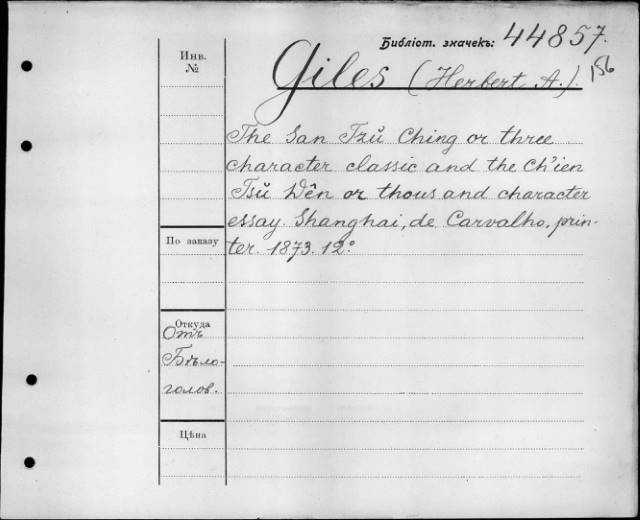 Библіот. значекъ: 44857.
Инв.
№
Giles (Herbert A.).
156
The San Tzŭ Ching or three
character classic and the Ch'ien
Tsŭ Wên or thousand character
essay. Shanghai, de Carvalho, prin-
ter. 1873. 12º
По заказу
Откуда
Отъ
Бѣло-
голов.
Цѣна